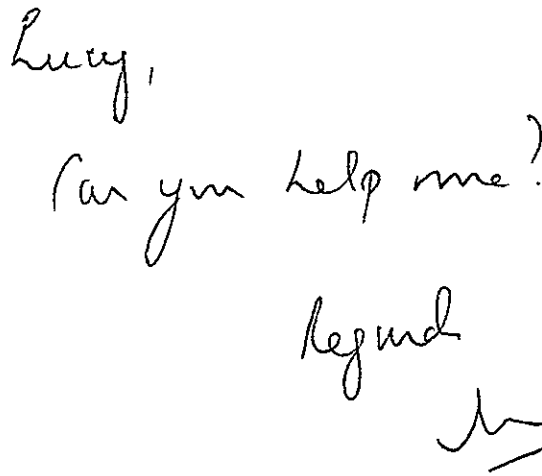 Lucy,
Can you help me?
Regards